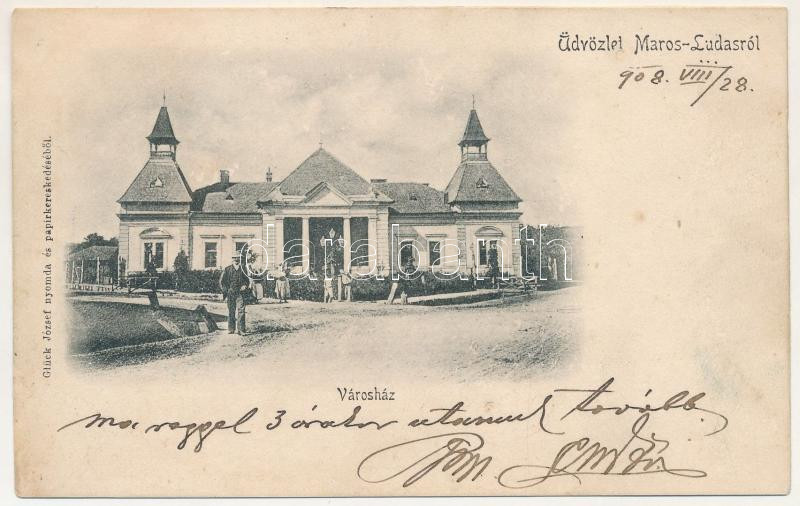 Üdvözlet Maros-Ludasról
908. VIII/28.
Glück József nyomda és papirkereskedéséből.
darabanth
Városház
ma reggel 3 órakor utazunk tovább.